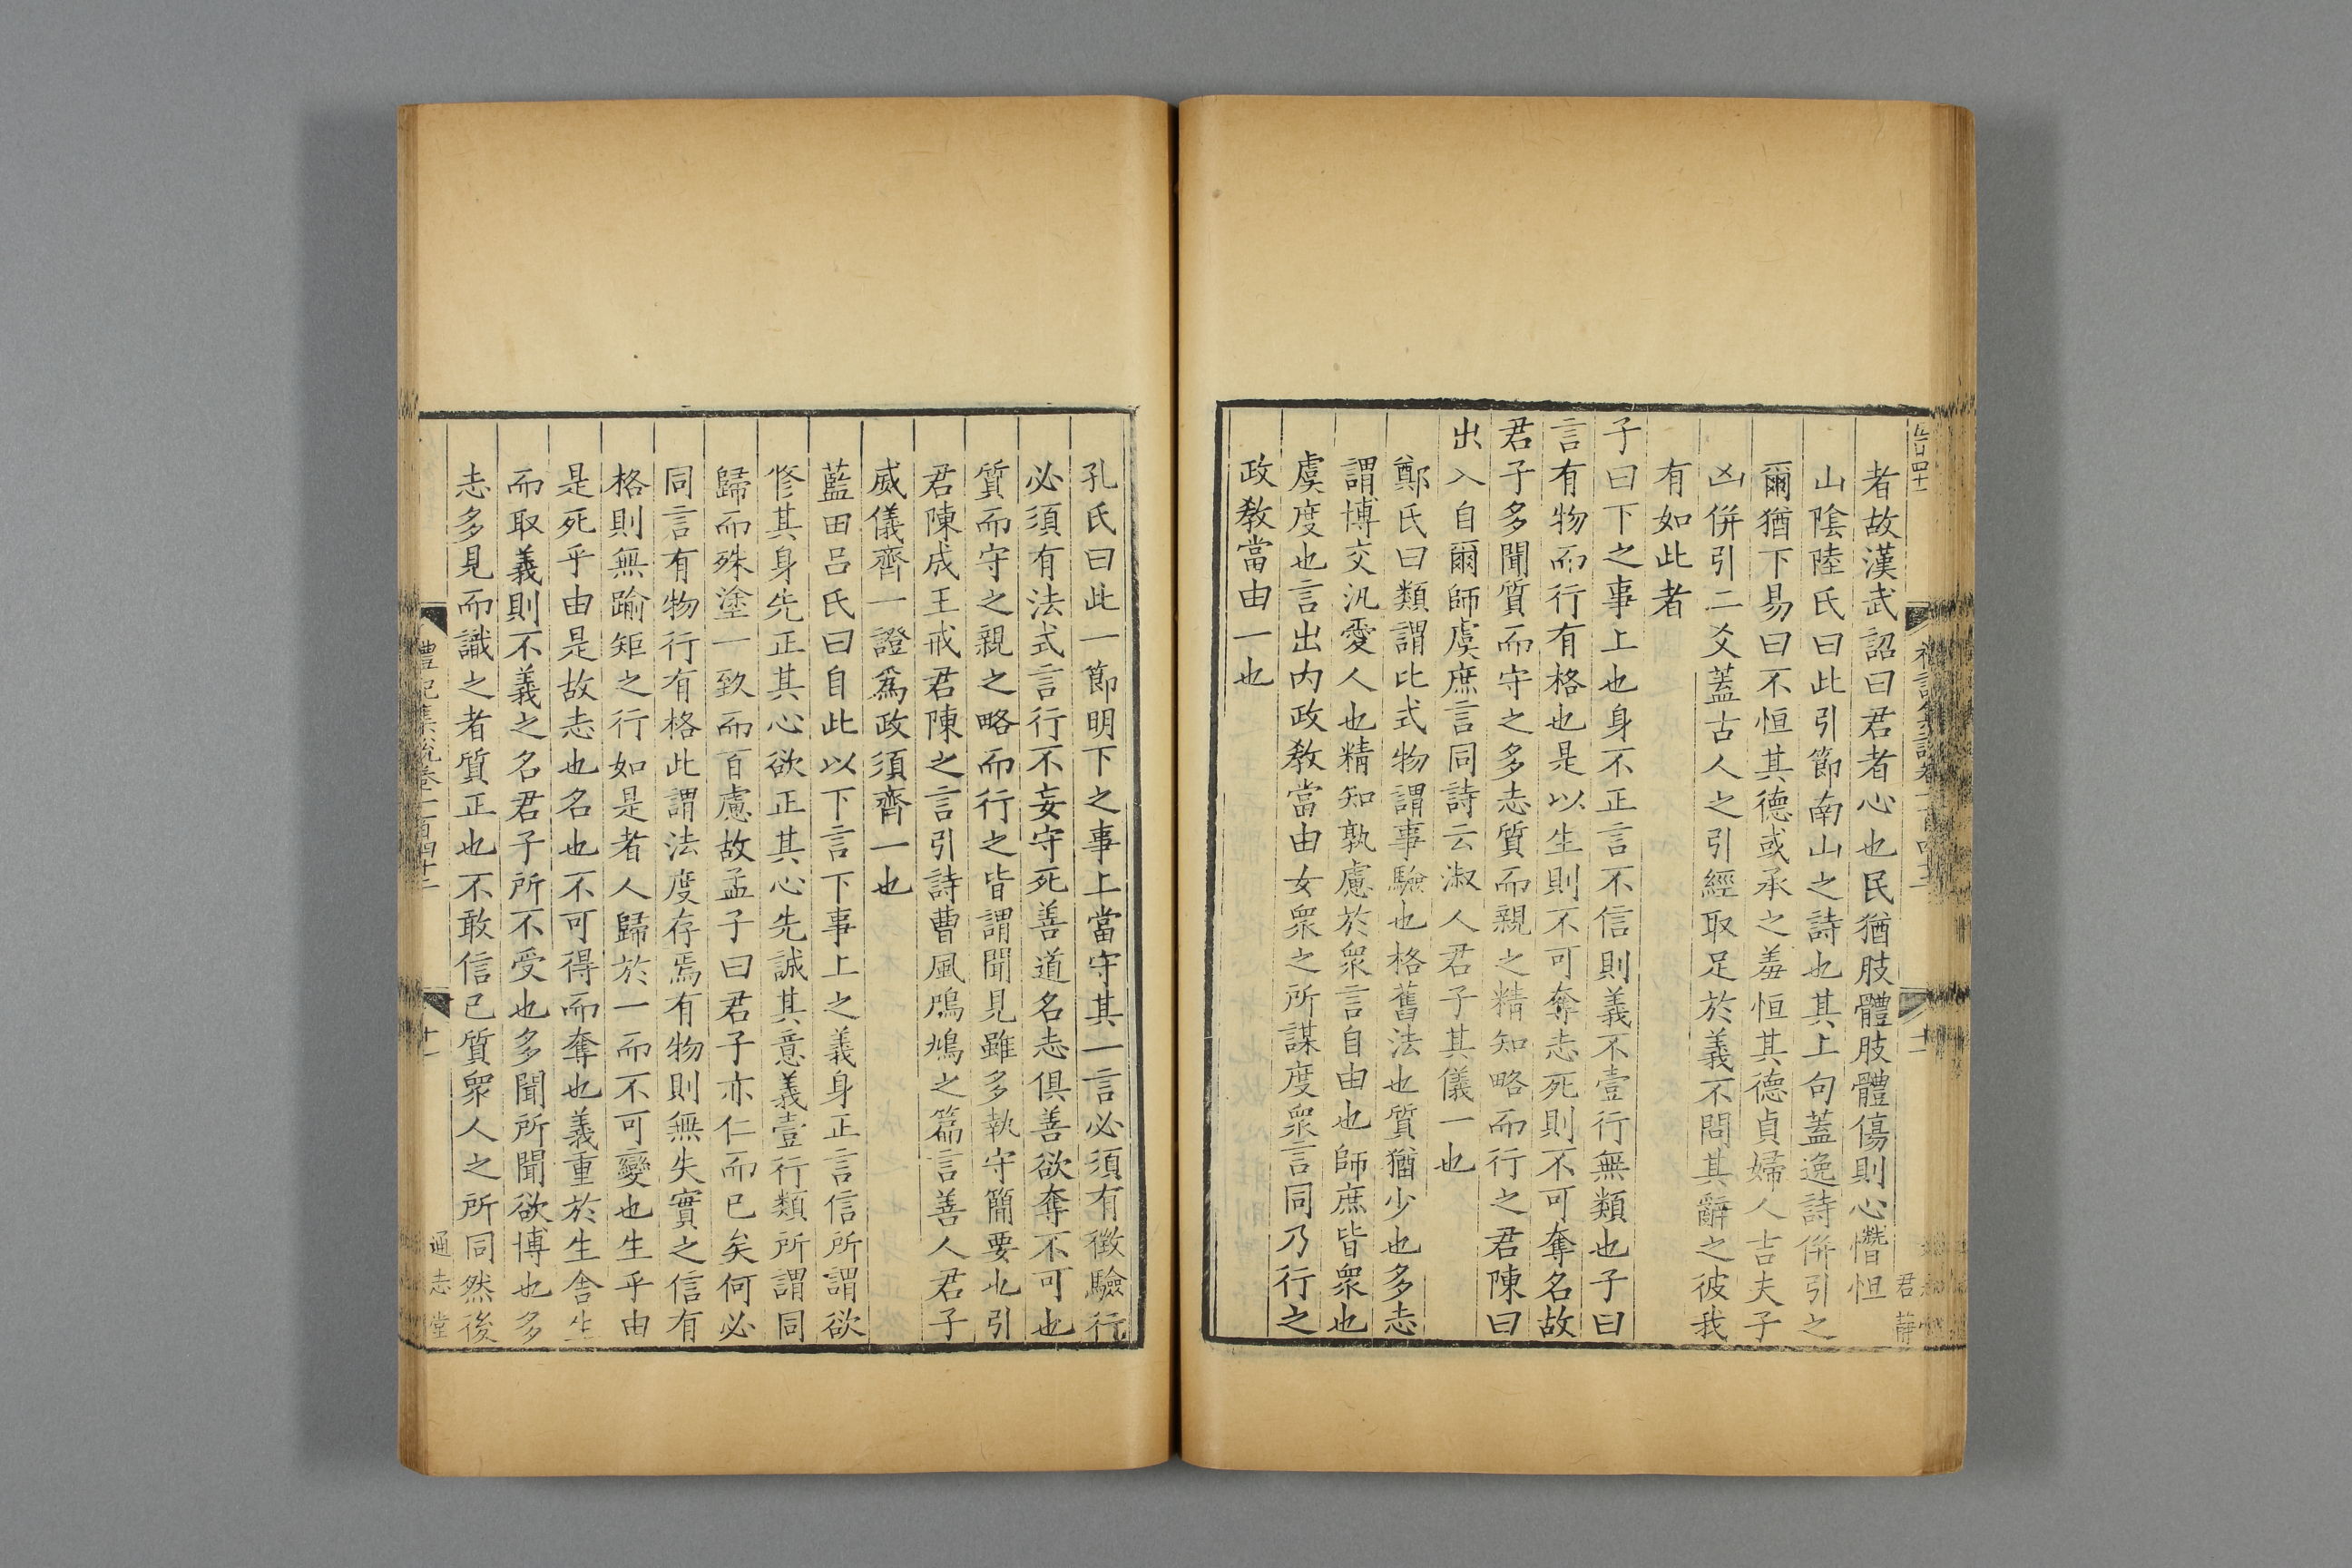 者故漢武詔曰君者心也民猶肢體肢體傷則心憯怛
山陰陸氏曰此引節南山之詩也其上句蓋逸詩併引之
爾猶下易曰不恒其德或承之羞恒其德貞婦人吉夫子
凶併引二爻蓋古人之引經取足於義不問其辭之彼我
有如此者
子曰下之事上也身不正言不信則義不壹行無類也子曰
言有物而行有格也是以生則不可奪志死則不可奪名故
君子多聞質而守之多志質而親之精知略而行之君陳曰
出入自爾師虞庶言同詩云淑人君子其儀一也
鄭氏曰類謂比式物謂事驗也格舊法也質猶少也多志
謂博交汎愛人也精知孰慮於衆言自由也師庶皆衆也
虞度也言出内政教當由女衆之所謀度衆言同乃行之
政教當由一也
君靜
孔氏曰此一節明下之事上當守其一言必須有徵驗行
必須有法式言行不妄守死善道名志俱善欲奪不可也
質而守之親之略而行之皆謂聞見雖多執守簡要也引
君陳成王戒君陳之言引詩曹風鳲鳩之篇言善人君子
威儀齊一證爲政須齊一也
藍田呂氏曰自此以下言下事上之義身正言信所謂欲
修其身先正其心欲正其心先誠其意義壹行類所謂同
歸而殊塗一致而百慮故孟子曰君子亦仁而已矣何必
同言有物行有格此謂法度存焉有物則無失實之信有
格則無踰矩之行如是者人歸於一而不可變也生乎由
是死乎由是故志也名也不可得而奪也義重於生舍生
而取義則不義之名君子所不受也多聞所聞欲博也多
志多見而識之者質正也不敢信已質衆人之所同然後
禮記集說卷一百四十二
十一
通志堂